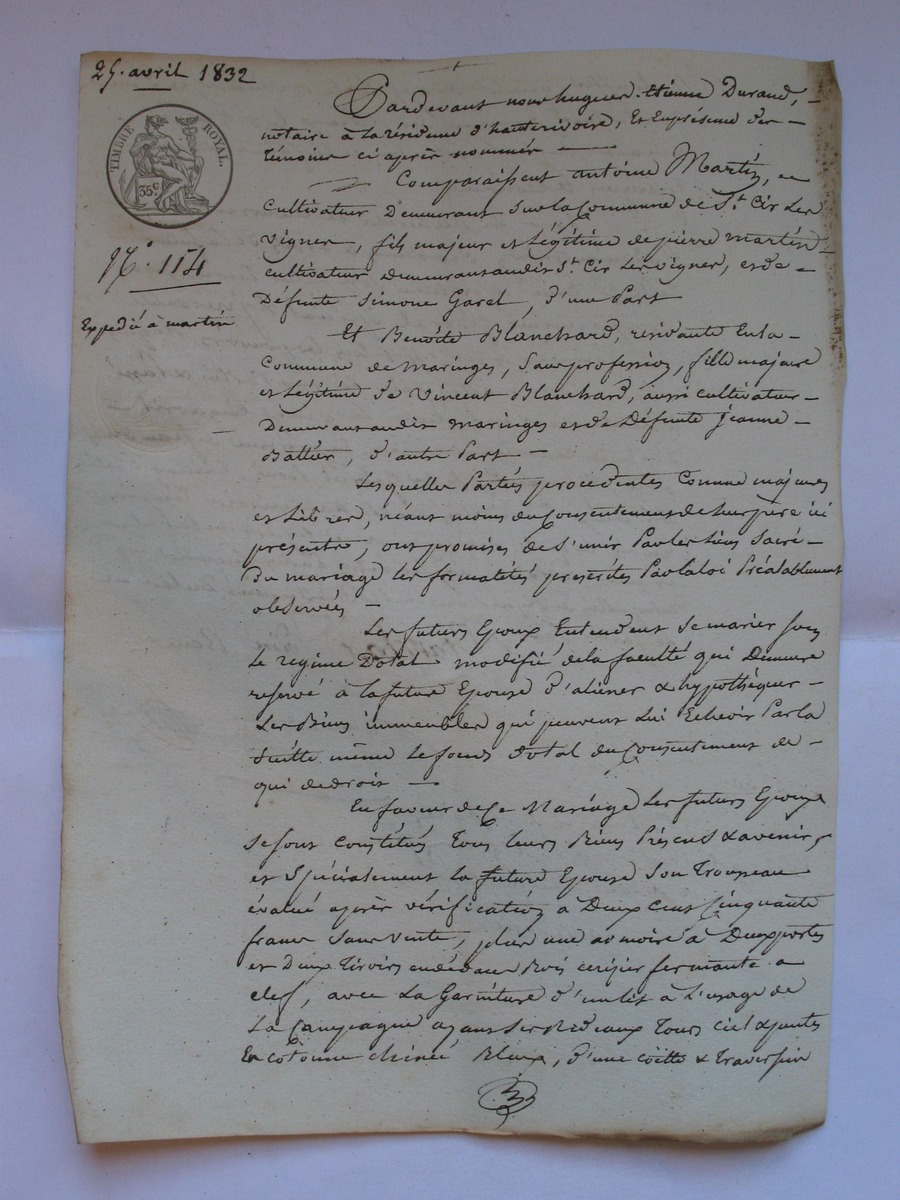 25. avril 1832
TIMBRE ROYAL.
35c
N°. 114
Expedié à martin
Pardevant nous hugues étienne Durand,
notaire à la résidence d'hauterivoire, et En présence des
témoins ci après nommés
Comparaissent antoine Martin,
Cultivateur Demeurant sur la Commune de St. Cir Les
vignes, fils majeur et Légitime de pierre martin
cultivateur demeurant audit St. Cir Les vignes, et de
Défunte Simone Garel, d'une Part
Et Benoite Blanchard, residante En la
Commune de maringes, Sans profession, fille majeure
et Légitime de Vincent Blanchard, aussi cultivateur
Demeurant audit maringes et de Défunte jeanne
Battier, d'autre Part
Lesquelles Parties procedentes Comme majeures
et Libres, néant moins du Consentement de leurs pere ici
présents, ont promises de s'unir Par les liens Sacré
Du mariage les formalités prescrites Par la loi Préalablement
observées
Les futurs Epoux Entendent se marier sous
Le regime Dotal modifié de la faculté qui Demeure
reservé à la future Epouse d'aliéner & hypothéquer
Les Biens immeubles qui peuvent lui Echoir Par la
Suitte même le fonds dotal du Consentement de
qui de droit
En faveur de Ce Mariage Les futurs Epoux
se sont Constitués Tous leurs Biens Présents & avenir,
et Spécialement la future Epouse Son Trousseau
évalué après vérification a Deux Cent Cinquante
francs Sans vente, plus une armoire à Deux portes
et Deux tiroirs en dedans Bois cerisier fermante a
clef, avec La Garniture d'un lit à L'usage de
La Campagne ayant Ses Rideaux Tours Ciel & pentes
En cotonne chinée Bleux, d'une coëtte & Traversin